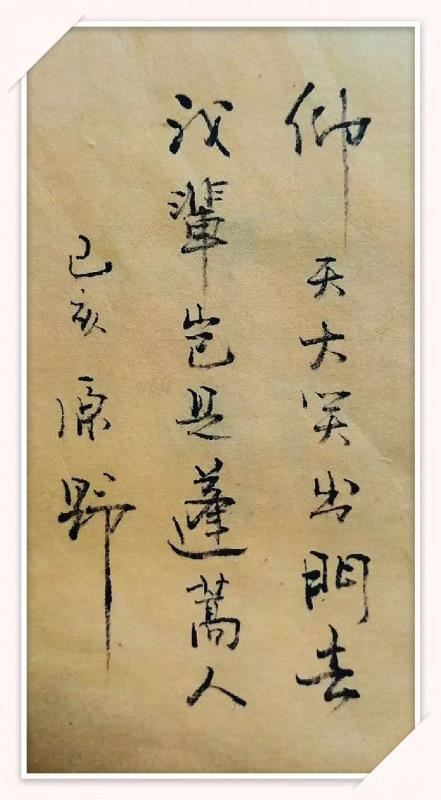 仰天大笑出門去
我輩岂是蓬蒿人
己亥 原野